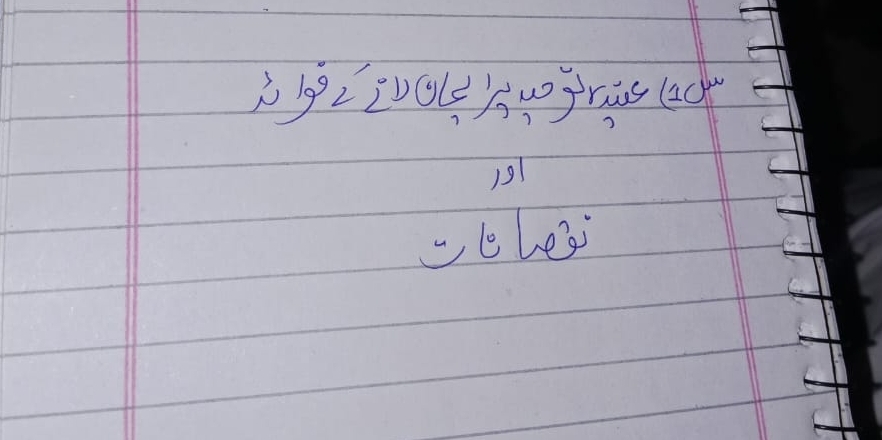 س1) عقیدہ توحید پر ایمان لانے کے فوائد
اور
نقصانات